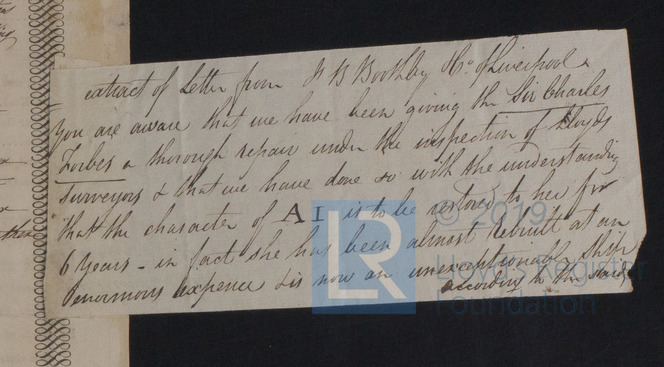 extract of Letter from J B Boothby & Co. of Liverpool
You are aware that we have been giving the Sir Charles
Forbes a thorough repair under the inspection of Lloyds
surveyors & that we have done so with the understanding
that the character of A I is to be restored to her for
6 years - in fact she has been almost rebuilt at an
enormous expence & is now an unexceptionable Ship
according to the
LR
© 2019
Lloyd's Register
Foundation